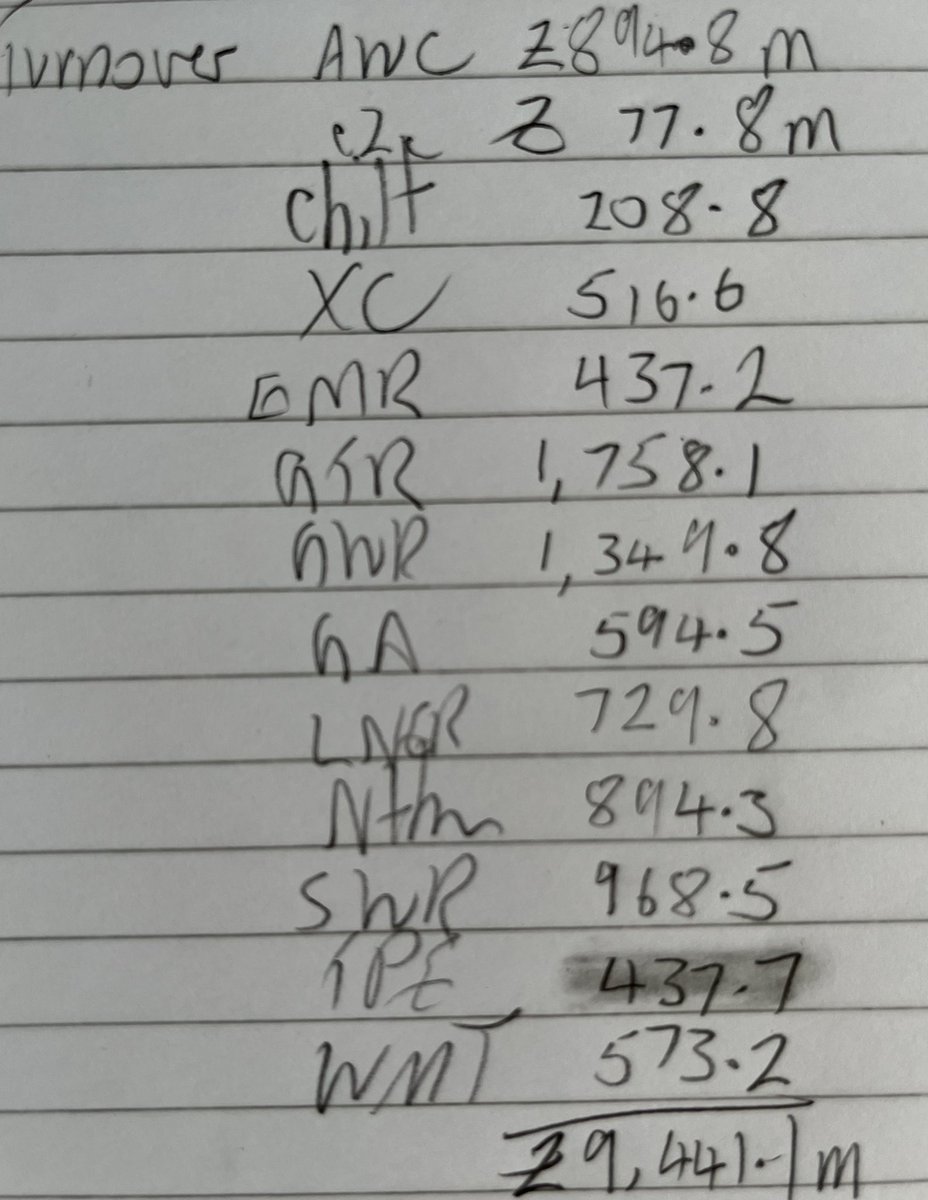 Turnover AWC £894.8m
c2c £ 77.8m
Chilt 208.8
XC 516.6
EMR 437.2
GTR 1,758.1
GWR 1,349.8
GA 594.5
LNER 729.8
Nthn 894.3
SWR 968.5
TPE 437.7
WMT 573.2
£9,441.1m